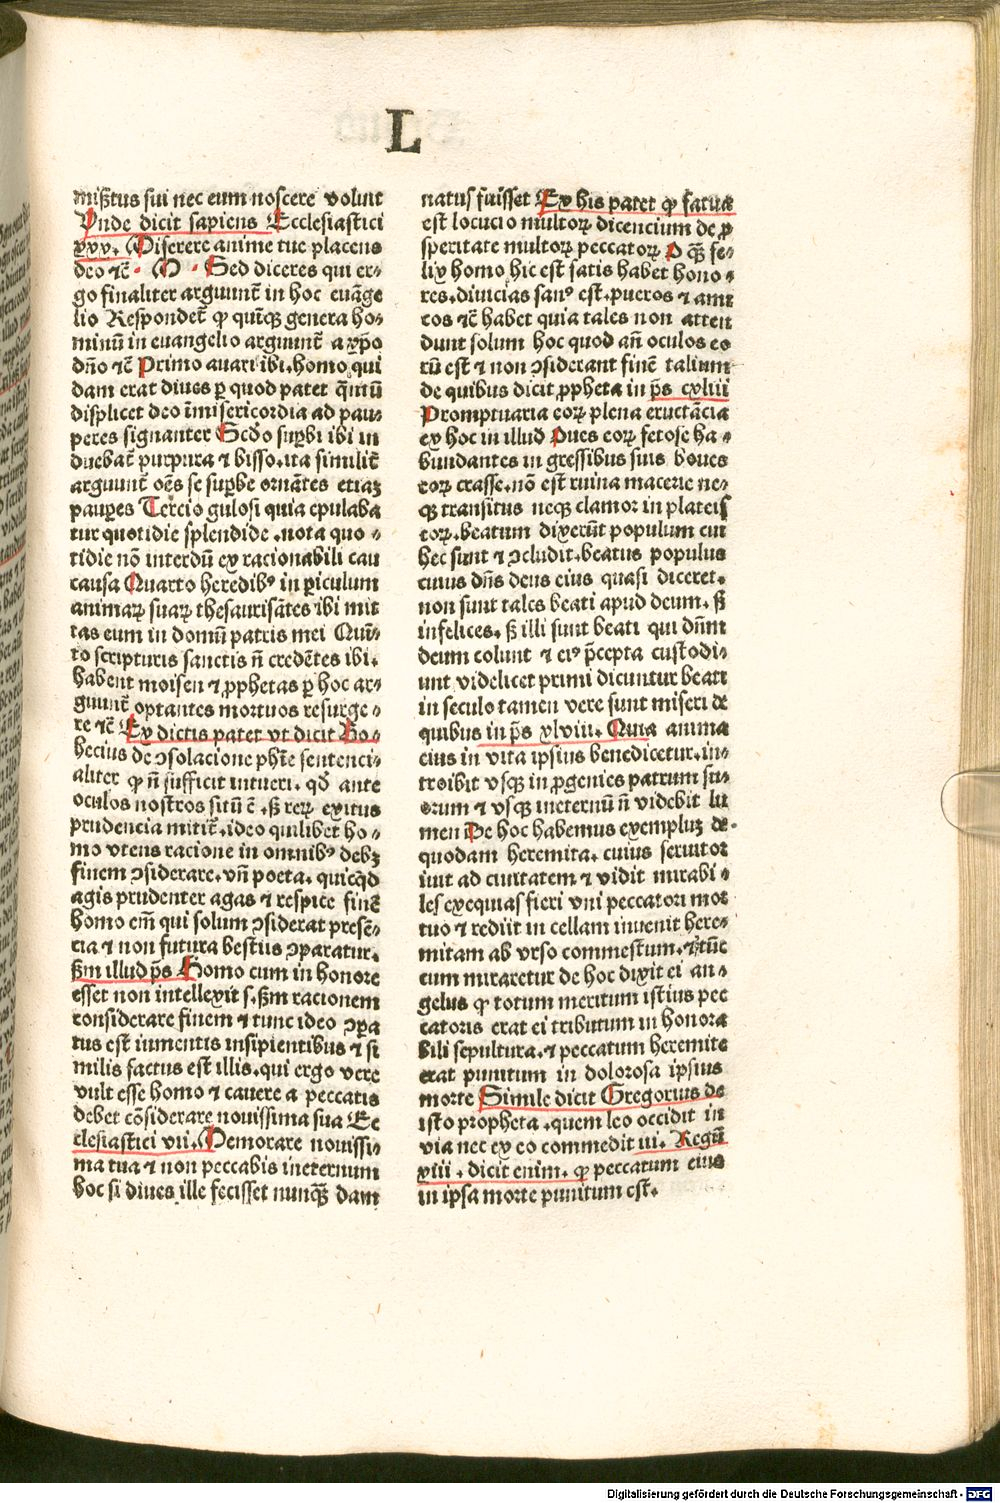 L
misertus sui nec eum noscere voluit
Vnde dicit sapiens Ecclesiastici
xxx. Miserere anime tue placens
deo ⁊c̄ · M · Sed diceres qui er⸗
go finaliter arguunt̄ in hoc euāge
lio Respondet̄ ꝙ quīqꝫ genera ho⸗
minū in euangelio arguunt̄ a xp̄o
dn̄o ⁊c̄ Primo auari ibi. homo qui
dam erat diues ꝑ quod patet q̄ntū
displicet deo īmisericordia ad pau⸗
peres signanter Scd̄o suꝑbi ibi in
duebat̄ purpura ⁊ bisso. ita similit̄
arguunt̄ oēs se suꝑbe ornātes etiaꝫ
pauꝑes Tercio gulosi quia epulaba
tur quotidie splendide . nota quo ⸗
tidie nō interdū ex racionabili cau
causa Quarto heredibꝰ in ꝑiculum
animaꝝ suaꝝ thesaurisātes ibi mit
tas eum in domū patris mei Quī⸗
to scripturis sanctis n̄ credētes ibi.
habent moisen ⁊ ꝓphetas ꝑ hoc ar⸗
guunt̄ optantes mortuos resurge ⸗
re ⁊c̄ Ex dictis patet vt dicit Bo⸗
hecius de ꝯsolacione ph̄ie sentenci⸗
aliter ꝙ n̄ sufficit intueri. qd̄ ante
oculos nostros sitū ē . sꝫ reꝝ exitus
prudencia mitit̄. ideo quilibet ho ⸗
mo vtens racione in omnibꝰ debꝫ
finem ꝯsiderare. vn̄ poeta. quicq̄d
agis prudenter agas ⁊ respice finē
homo em̄ qui solum ꝯsiderat prese⸗
cia ⁊ non futura bestiis ꝯparatur.
sm̄ illud ps̄ Homo cum in honore
esset non intellexit s. sm̄ racionem
considerare finem ⁊ tunc ideo ꝯꝑa
tus est iumentis insipientibus ⁊ si
milis factus est illis. qui ergo vere
vult esse homo ⁊ cauere a peccatis
debet cōsiderare nouissima sua Ec
clesiastici vii. Memorare nouissi⸗
ma tua ⁊ non peccabis ineternum
hoc si diues ille fecisset nunqꝫ dam
natus fuisset Ex his patet ꝙ fatua
est locucio multoꝝ dicencium de ꝓ
speritate multoꝝ peccatoꝝ O qꝫ fe⸗
lix homo hic est satis habet hono ⸗
res. diuicias sanꝰ est. pueros ⁊ ami
cos ⁊c̄ habet quia tales non atten
dunt solum hoc quod an̄ oculos eo
rū est ⁊ non ꝯsiderant finē talium
de quibus dicit ꝓpheta in ps̄ cxliii
Promptuaria eoꝝ plena eructācia
ex hoc in illud Oues eoꝝ fetose ha ⸗
bundantes in gressibus suis boues
eoꝝ crasse. nō est ruina macerie ne⸗
qꝫ transitus neqꝫ clamor in plateis
eoꝝ. beatum dixerūt populum cui
hec sunt ⁊ ꝯcludit. beatus populus
cuius dn̄s deus eius quasi diceret.
non sunt tales beati apud deum. sꝫ
infelices. sꝫ illi sunt beati qui dn̄m
deum colunt ⁊ eiꝰ p̄cepta custodi⸗
unt videlicet primi dicuntur beati
in seculo tamen vere sunt miseri de
quibus in ps̄ xlviii. Quia anima
eius in vita ipsius benedicetur. in⸗
troibit vsqꝫ in ꝓgenies patrum su⸗
orum ⁊ vsqꝫ ineternū n̄ videbit lu
men De hoc habemus exempluꝫ de.
quodam heremita. cuius seruitor
iuit ad ciuitatem ⁊ vidit mirabi ⸗
les exequias fieri vni peccatori mor
tuo ⁊ rediit in cellam inuenit here⸗
mitam ab vrso commestum. ⁊ tūc
cum miraretur de hoc dixit ei an⸗
gelus ꝙ totum meritum istius pec
catoris erat ei tributum in honora
bili sepultura. ⁊ peccatum heremite
erat punitum in dolorosa ipsius
morte Simile dicit Gregorius de
isto propheta . quem leo occidit in
via nec ex eo commedit iii. Regū
xiii . dicit enim. ꝙ peccatum eius
in ipsa morte punitum est.
Digitalisierung gefördert durch die Deutsche Forschungsgemeinschaft - DFG